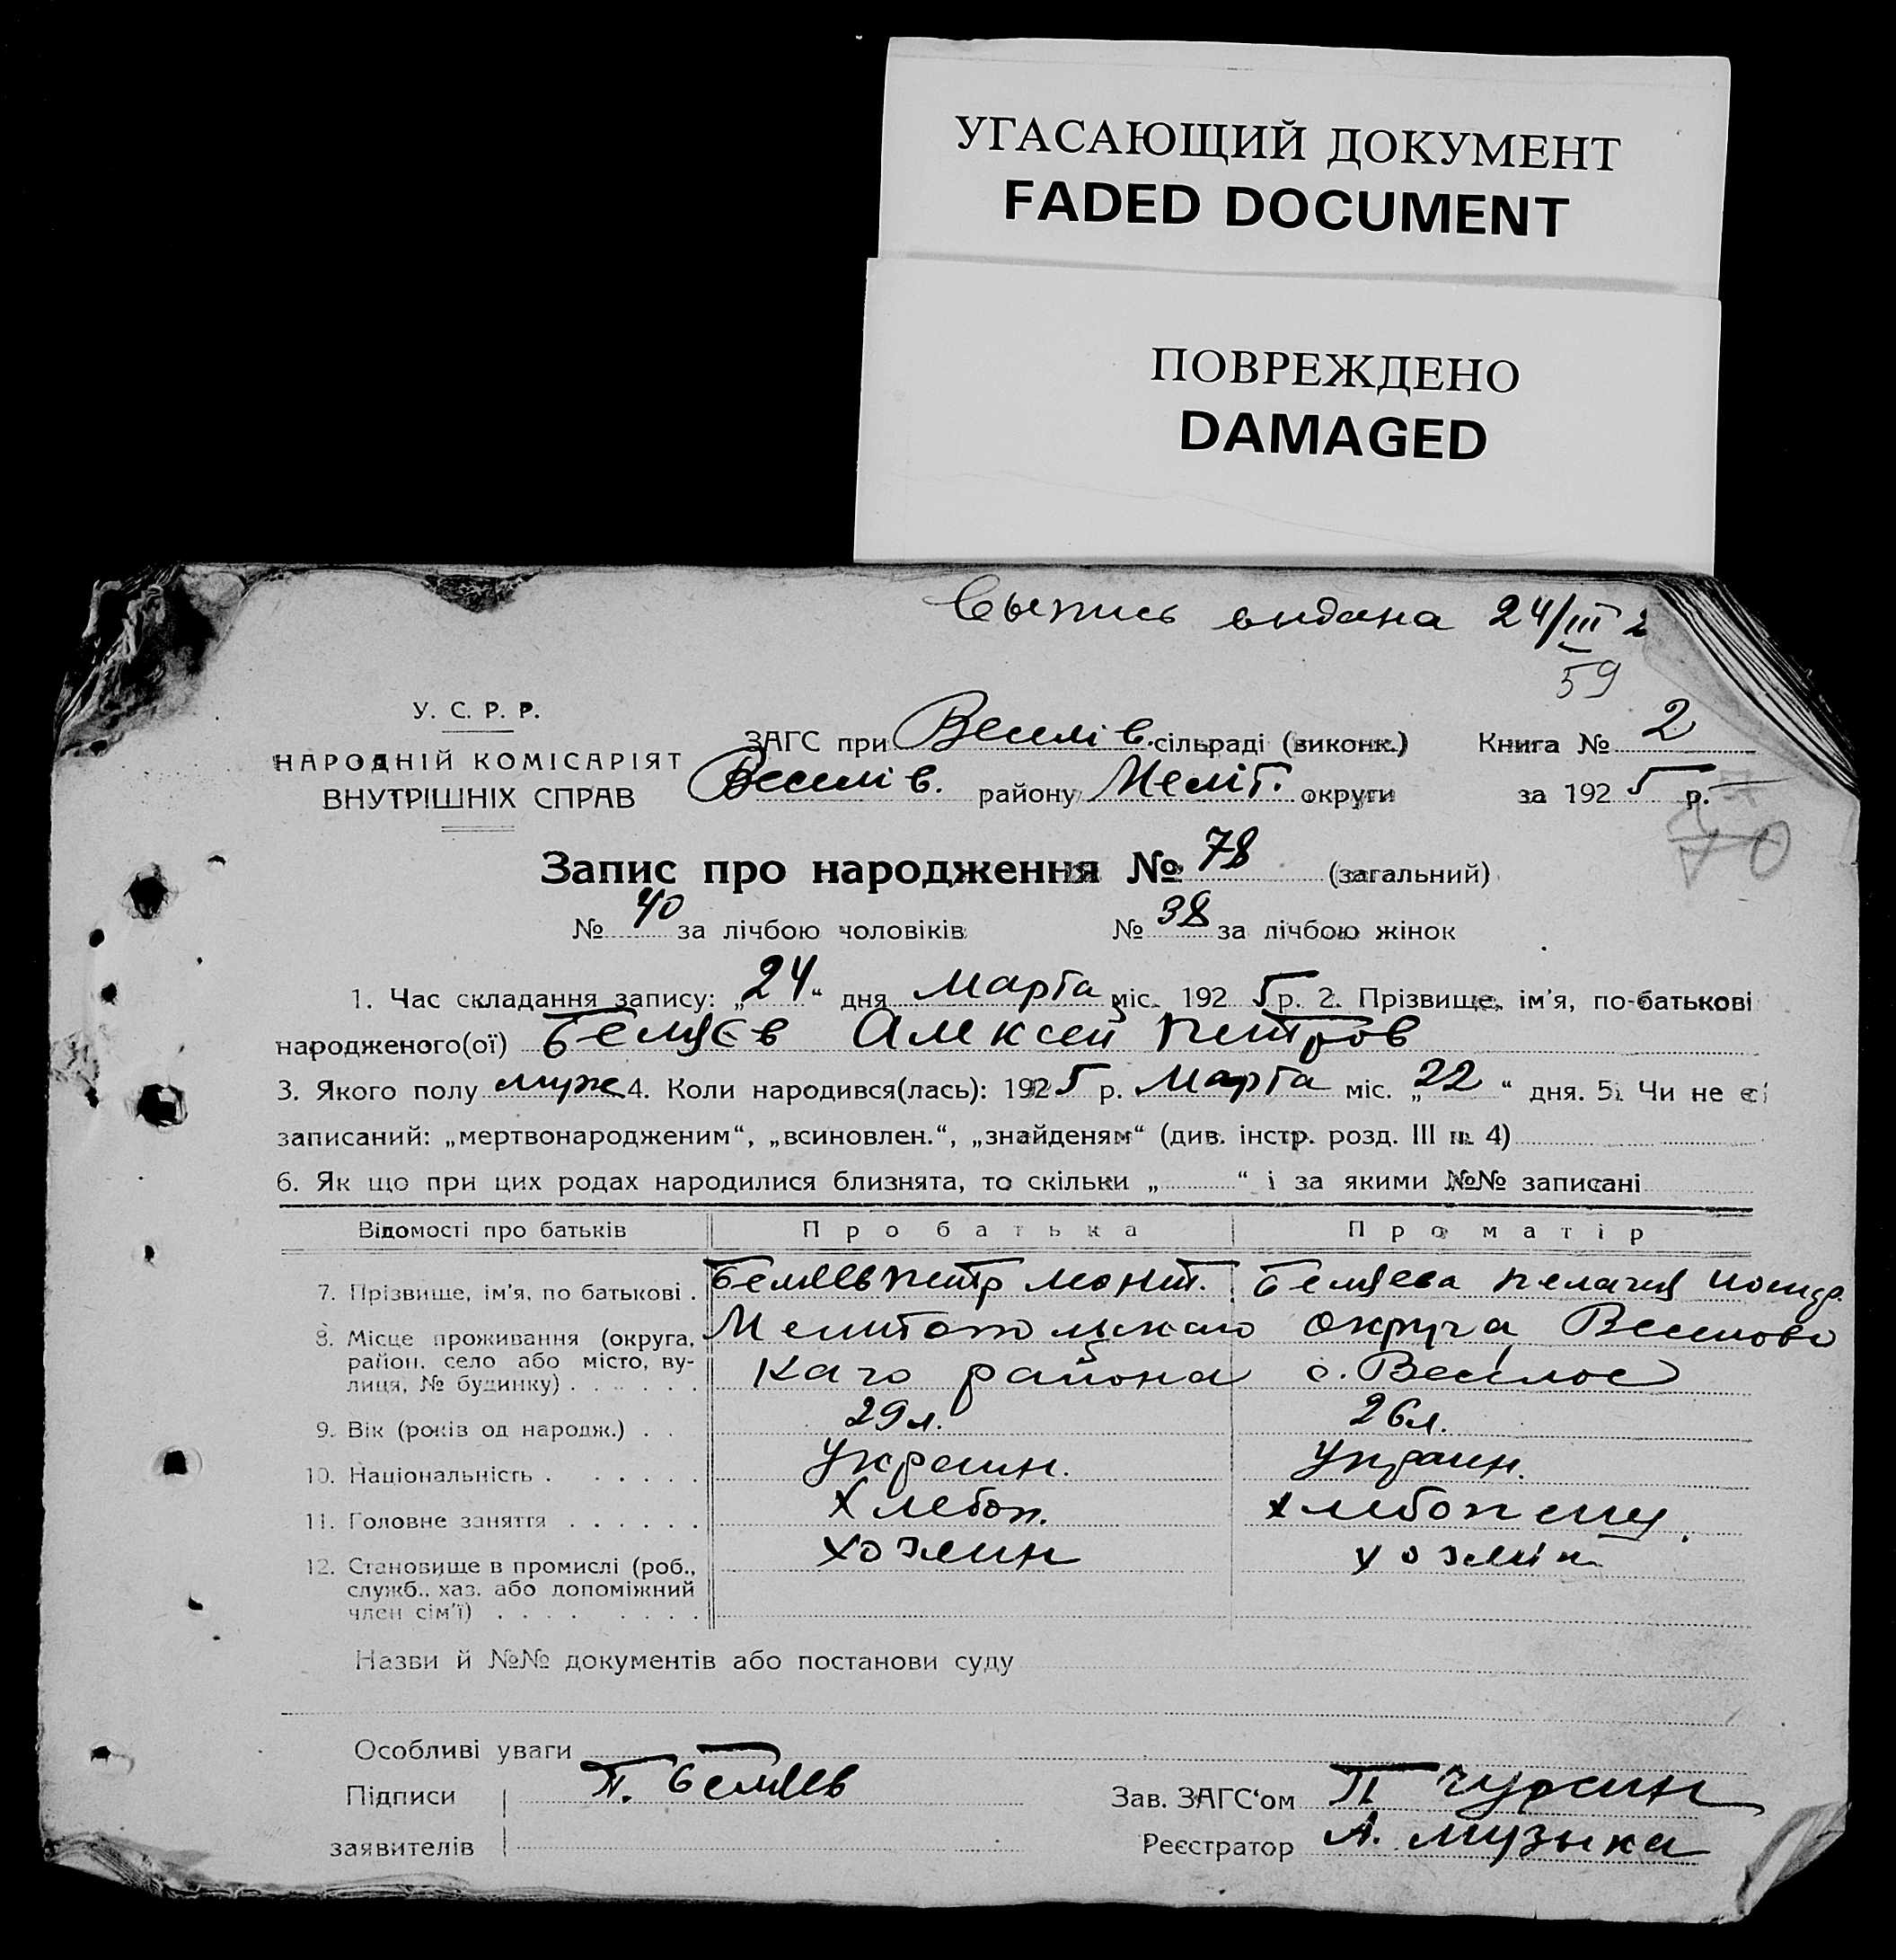 УГАСАЮЩИЙ ДОКУМЕНТ
FADED DOCUMENT
ПОВРЕЖДЕНО
DAMAGED
Выпись выдана 24/III 2
59
У. С. Р. Р.
НАРОДНІЙ КОМІСАРІЯТ
ВНУТРІШНІХ СПРАВ
ЗАГС при Веселів. сільраді (виконк.) Книга № 2
Веселів. району Меліт. округи за 1925 р.
70
Запис про народження № 78 (загальний)
№ 40 за лічбою чоловіків № 38 за лічбою жінок
1. Час складання запису: „24“ дня Марта міс. 1925 р. 2. Прізвище, ім'я, по-батькові
народженого(ої) Беляев Алексей Петров
3. Якого полу муж 4. Коли народився(лась): 1925 р. Марта міс. „22“ дня. 5. Чи не є
записаний: „мертвонародженим“, „всиновлен.“, „знайденям“ (див. інстр. розд. III п. 4)
6. Як що при цих родах народилися близнята, то скільки „ “ і за якими №№ записані
Відомості про батьків Про батька Про матір
7. Прізвище, ім'я, по батькові . Беляев Петр Беляева Пелагея
8. Місце проживання (округа, Мелитопольскаго округа, Веселовс
район, село або місто, ву- каго района с. Веселое
лиця, № будинку) . . . . . .
9. Вік (років од народж.) . . 29 л. 26 л.
10. Національність . . . . . . Украин. Украин.
11. Головне заняття . . . . . . Хлебоп. хлебопашц.
12. Становище в промислі (роб., хозяин хозяин
служб., хаз. або допоміжний
член сім'ї) . . . . . . . .
Назви й №№ документів або постанови суду
Особливі уваги
Підписи П. Беляев Зав. ЗАГС'ом П Чурсин
заявителів Реєстратор А. Музыка